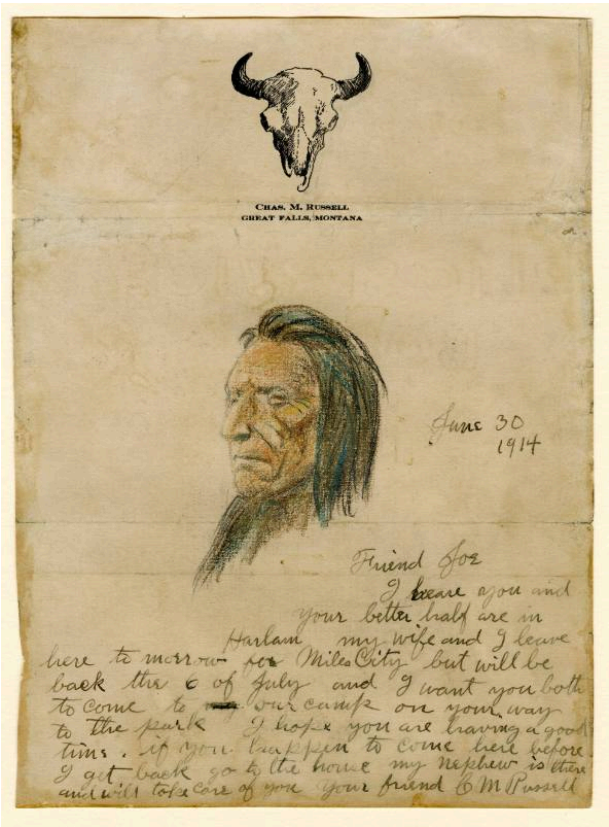 CHAS. M. RUSSELL
GREAT FALLS, MONTANA
June 30
1914
Friend Joe
I heare you and
your better half are in
Harlam my wife and I leave
here to morrow for Miles City but will be
back the 6 of July and I want you both
to come to our camp on your way
to the park I hope you are having a good
time. if you happen to come here before
I get back go to the house my nephew is there
and will take care of you your friend C M Russell